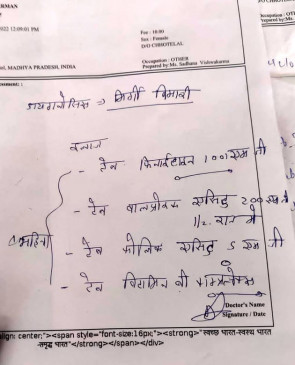 ERMAN
2022 12:09:01 PM
Fee : 10.00
Sex : Female
D/O CHHOTELAL
Occupation : OTHER
Prepared by: Ms. Sadhana Vishwakarma
MADHYA PRADESH, INDIA
डायग्नोसिस ⇒ मिर्गी बिमारी
- टेब 100 एम जी
- टेब वालप्रोइक एसिड 200 एम जी
1/2 रात में
- टेब फोलिक एसिड 5 एम जी
- टेब विटामिन बी काम्प्लेक्स
Doctor's Name
Signature / Date
align: center;"><span style="font-size:16pix"><strong>"स्वच्छ भारत-स्वस्थ भारत
-समृद्ध भारत"</strong></span></div>